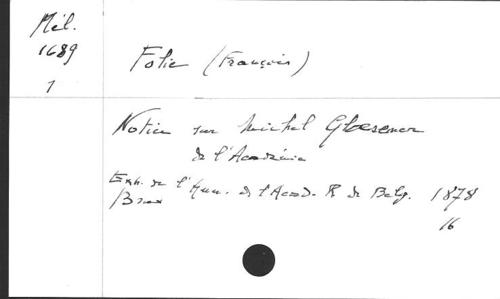 Mél.
1689
1
Folie (François)
Notice sur Michel Gloesener
de l'Académie
Extr. de l'Ann. de l'Acad. R de Belg. 1878
/Brux
16